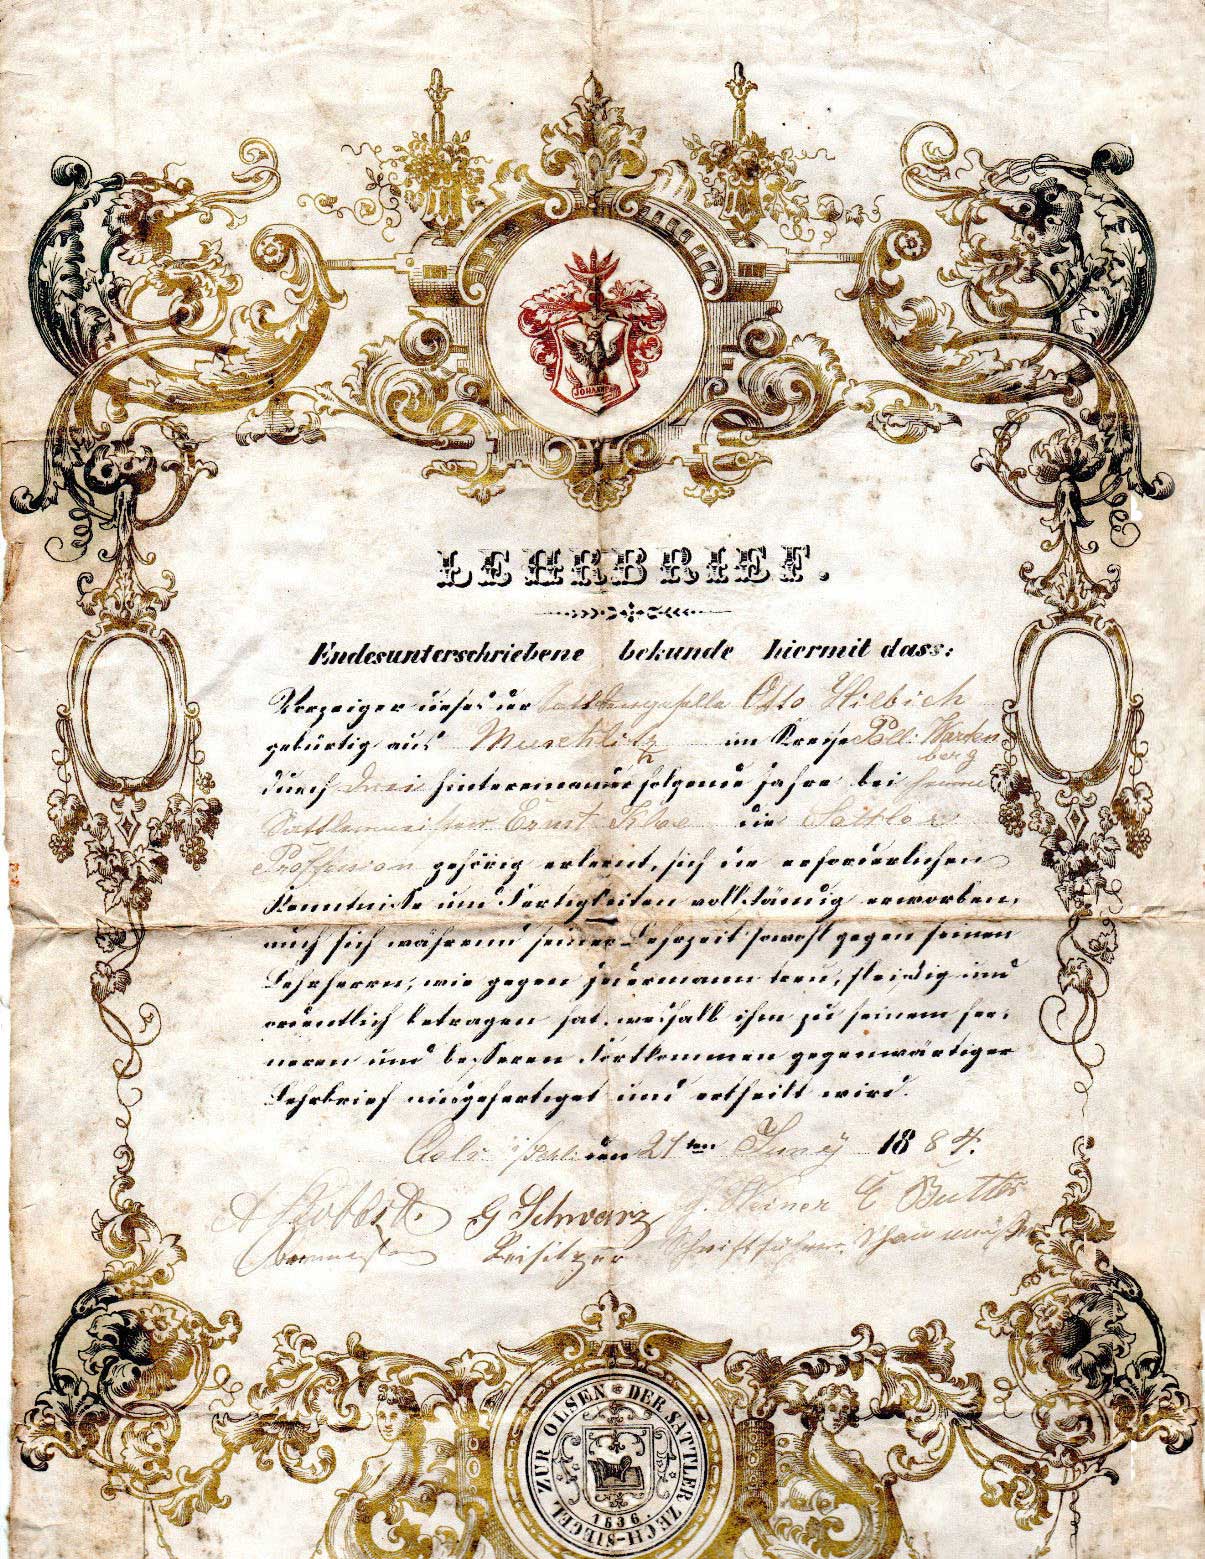 LEHRBRIEF.
Endesunterschriebene bekunde hiermit dass:
Vorzeiger dieses der Sattlergeselle Otto Hilbich
gebürtig aus Muschlitz im Kreise Poll: Warten
berg
durch drei hintereinander folgende Jahre bei Herrn
Sattlermeister Ernst die Sattler
Proffession gehörig erlernt, sich die erforderlichen
Kenntnisse und Fertigkeiten vollständig erworben,
auch sich während seiner Lehrzeit sowohl gegen seinen
Lehrherrn, wie gegen Jedermann treu, fleißig und
ordentlich betragen hat, weshalb ihm zu seinem fer-
neren und besseren Fortkommen gegenwärtiger
Lehrbrief ausgefertiget und ertheilt wird.
Oels den 21ten Juny 1884.
G Schwarz
Obermeister Beisitzer Schriftführer
JOHANNES
SIEGEL ZUR OLSEN DER SATTLER ZECH-
1696.